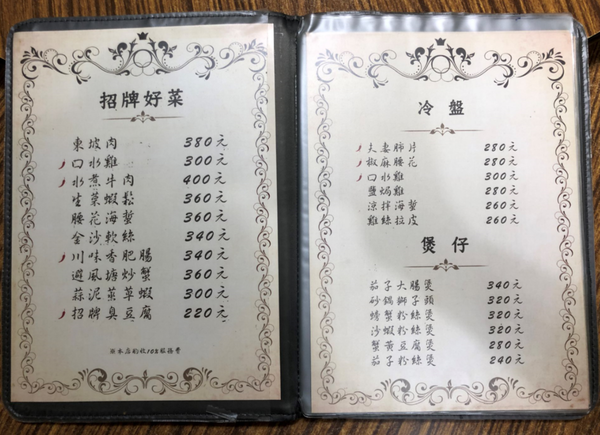 招牌好菜
東坡肉 380元
口水雞 300元
水煮牛肉 400元
生菜蝦鬆 360元
腰花海蜇 360元
金沙軟絲 340元
川味香肥腸 340元
避風塘炒蟹 360元
蒜泥草蝦 300元
招牌臭豆腐 220元
冷盤
夫妻肺片 280元
椒麻腰花 280元
口水雞 300元
鹽焗雞 280元
涼拌海蜇 260元
雞絲拉皮 260元
煲仔
茄子大腸煲 340元
砂鍋獅子頭 320元
螃蟹粉絲煲 320元
沙蝦粉絲煲 320元
蟹黃豆腐煲 280元
茄子粉絲煲 240元